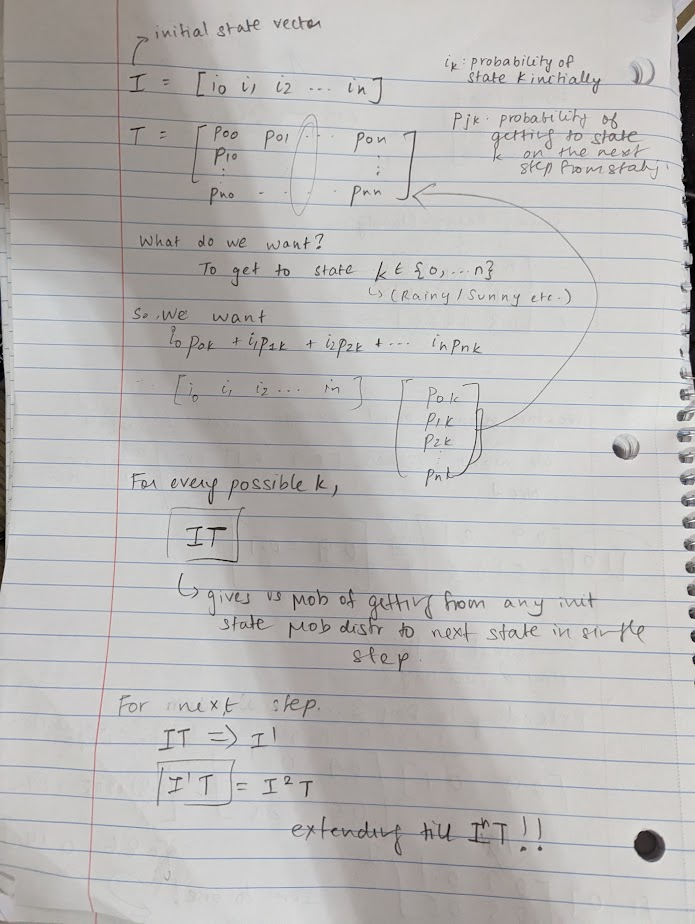 initial state vector
I = [i₀ i₁ i₂ ... iₙ]
iₖ: probability of
state k initially
T = [p₀₀ p₀₁ ... p₀ₙ
p₁₀ ⋮
⋮
pₙ₀ - - - pₙₙ]
pⱼₖ. probability of
getting to state
k on the next
step from state j.
What do we want?
To get to state k ∈ {0, ... n}
↳ (Rainy / Sunny etc.)
So, we want
i₀p₀ₖ + i₁p₁ₖ + i₂p₂ₖ + ... iₙpₙₖ
[i₀ i₁ i₂ ... iₙ] [p₀ₖ
p₁ₖ
p₂ₖ
⋮
pₙₖ]
For every possible k,
IT
↳ gives us prob of getting from any init
state prob distr to next state in single
step.
For next step.
IT => I'
I'T = I²T
extending till IⁿT!!